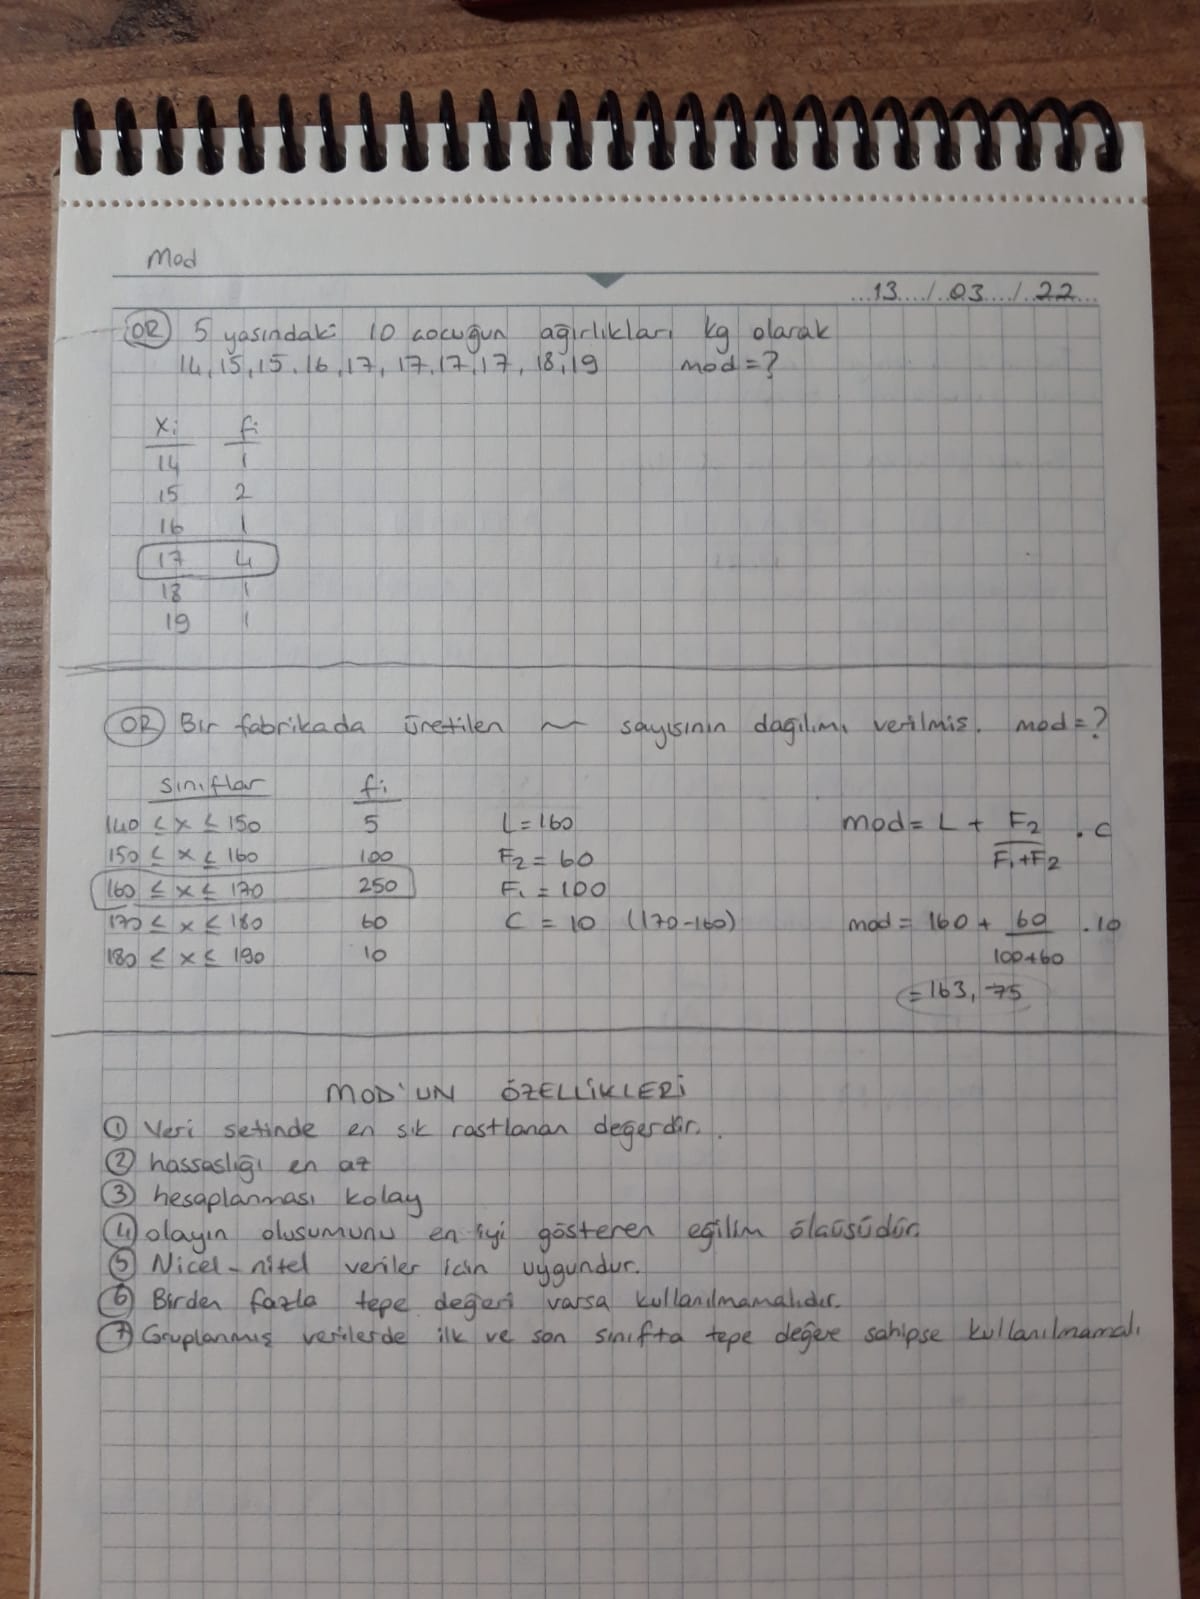 Mod
13/03/22
ÖR 5 yasındaki 10 cocuğun ağırlıkları kg olarak
14, 15, 15, 16, 17, 17, 17, 17, 18, 19 mod=?
xi fi
14 1
15 2
16 1
17 4
18 1
19 1
ÖR Bir fabrikada üretilen ~ sayısının dağılımı verilmis. mod=?
sınıflar fi
140 ≤ x ≤ 150 5 L=160 mod = L + F2/(F1+F2) . c
150 ≤ x ≤ 160 100 F2 = 60
160 ≤ x ≤ 170 250 F1 = 100
170 ≤ x ≤ 180 60 C = 10 (170-160) mod = 160 + 60/(100+60) . 10
180 ≤ x ≤ 190 10
= 163,75
MOD'UN ÖZELLİKLERİ
① Veri setinde en sık rastlanan değerdir.
② hassaslığı en az
③ hesaplanması kolay
④ olayın olusumunu en iyi gösteren eğilim ölcüsüdür.
⑤ Nicel-nitel veriler icin uygundur.
⑥ Birden fazla tepe değeri varsa kullanılmamalıdır.
⑦ Gruplanmış verilerde ilk ve son sınıfta tepe değere sahipse kullanılmamalı